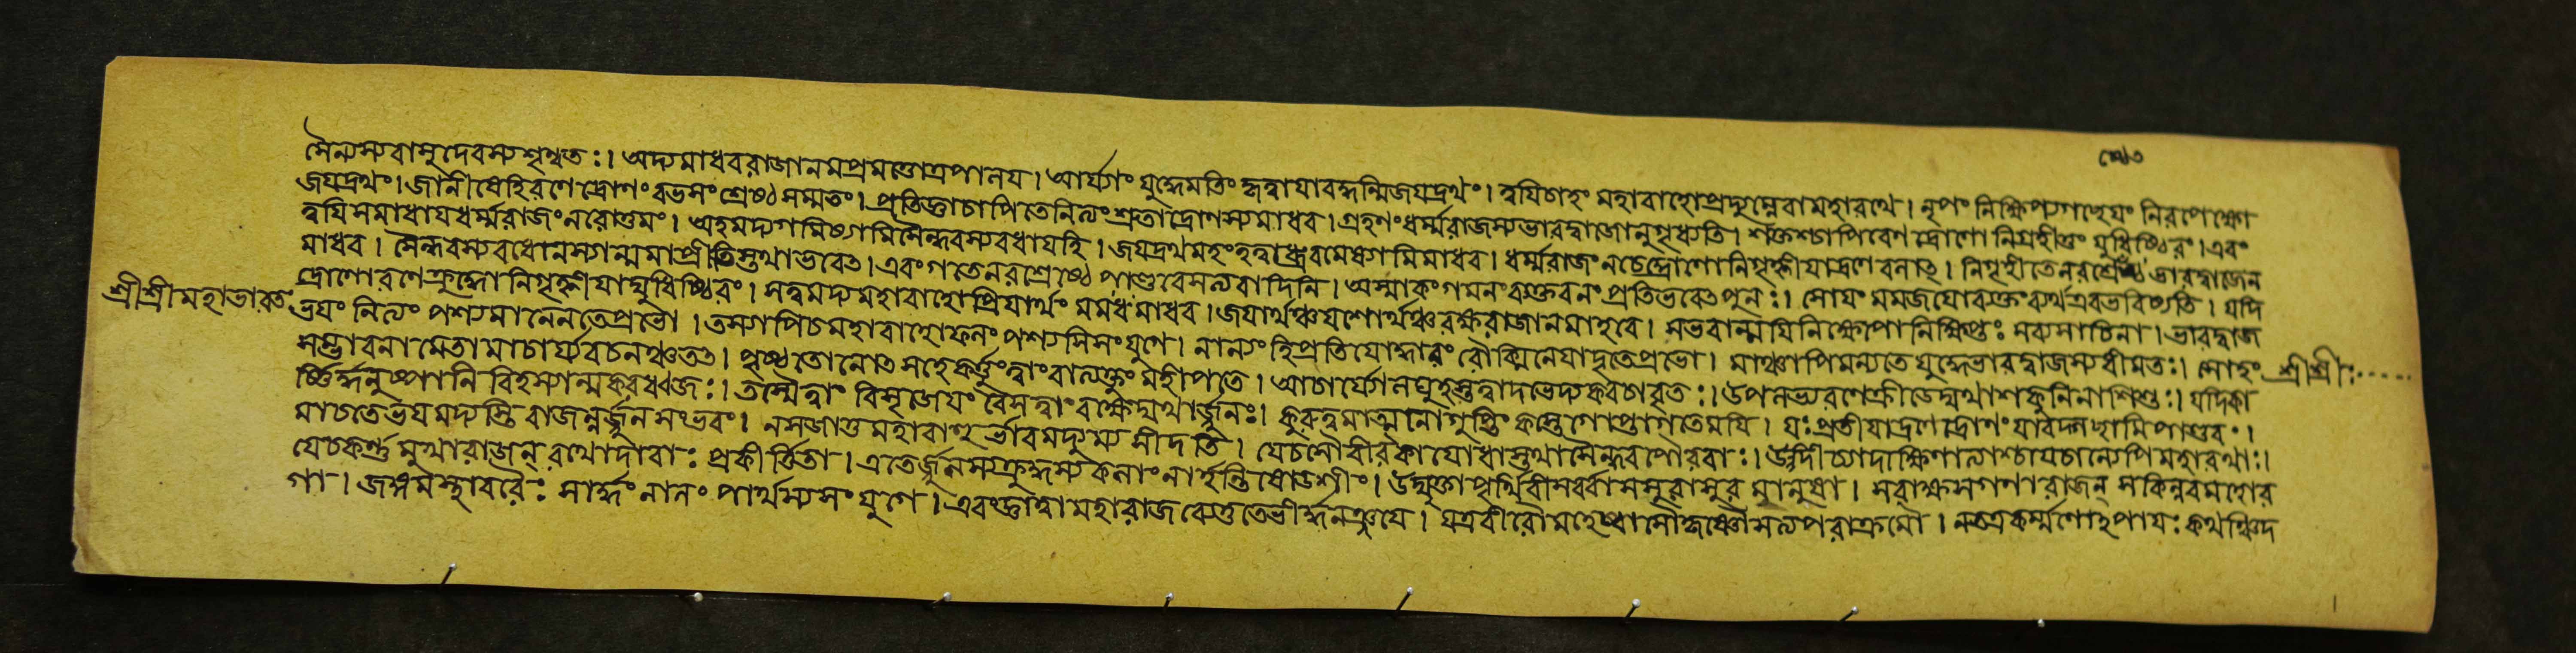 ৩০৩
সৈন্যস্যবাসুদেবস্যশৃণ্বতঃ। অদ্যমাধবরাজানমপ্রমত্তোত্রপালয। আর্য্যাং যুদ্ধেমতিং কৃত্বাযাবদ্ধন্মিজযদ্রথং। ত্বযিচাহং মহাবাহোপ্রদ্যুম্নেবামহারথে। নৃপং নিক্ষিপ্যগচ্ছেযং নিরপেক্ষো
জযদ্রথং। জানীষেহিরণে দ্রোণং রভসং শ্রেষ্ঠসম্মতং। প্রতিজ্ঞাচাপিতেনিত্যং শ্রুতাদ্রোণস্যমাধব। গ্রহণংধর্ম্মরাজস্যভারদ্বাজোনুগৃধ্যতি। শক্তশ্চাপিরণে দ্রোণো নিগ্রহীতুং যুধিষ্ঠিরং। এবং
ত্বযি সমাধাযধর্ম্মরাজংনরোত্তমং। অহমদ্যগমিষ্যামিসৈন্ধবস্যবধাযহি। জযদ্রথমহংহত্বাধ্রুবমেষ্যামিমাধব। ধর্ম্মরাজংনচেদ্রোণোনিগৃহ্ণীযাদ্রণেবলাৎ। নিগৃহীতেনরশ্রেষ্ঠে ভারদ্বাজেন
মাধব। সৈন্ধবস্যবধোনস্যান্মমাপ্রীতিস্তথাভবেৎ। এবংগতেনরশ্রেষ্ঠে পাণ্ডবেসত্যবাদিনি। অস্মাকংগমনংব্যক্তংবনংপ্রতিভবেৎপুনঃ। সোযং মমজযোব্যক্তংব্যর্থএবভবিষ্যতি। যদি
দ্রোণোরণেক্রুদ্ধোনিগৃহ্ণীযাদ্যুধিষ্ঠিরং। সত্বমদ্যমহাবাহোপ্রিযার্থং মমমাধব। জযার্থঞ্চযশোর্থঞ্চরক্ষরাজানমাহবে। সভবান্ময়িনিক্ষেপোনিক্ষিপ্তঃ সব্যসাচিনা। ভারদ্বাজ
শ্রীশ্রীমহাভারত
ভযং নিত্যং পশ্যমানেনতেপ্রভো। তস্যাপিচমহাবাহোফলং পশ্যসিসংযুগে। নান্যংহিপ্রতিযোদ্ধারং রৌক্মিনেযাদৃতেপ্রভো। মাঞ্চাপিমন্যতেযুদ্ধেভারদ্বাজস্যধীমতঃ। সোহং
শ্রীশ্রীঃ
সম্ভাবনামেতামাচার্য্যবচনঞ্চতৎ। পৃষ্ঠতোনোৎসহেকর্ত্তুংত্বাংবাত্যক্তুং মহীপতে। আচার্য্যোলঘুহস্তত্বাদভেদ্যকবচাবৃতঃ। উপলভ্যরণেক্রীডেদ্যথাশকুনিনাশিশুঃ। যদিকা
র্ষ্ণির্দ্ধনুষ্পাণি বিহস্যান্মকরধ্বজঃ। তস্মৈত্বাং বিসৃজেযং বৈসত্বাংরক্ষেদ্যথার্জ্জুনঃ। কুরুত্বমাত্মনোগুপ্তিং কস্তেগোপ্তাগতেময়ি। যঃপ্রতীযাদ্রণেদ্রোণং যাবদ্গচ্ছামিপাণ্ডবং।
মাচতেভযমদ্যাস্তি রাজন্নর্জ্জুনসংভবং। নসজাতুমহাবাহুর্ভাবমদ্যম্য সীদতি। যেচসৌবীরকাযোধাস্তথাসৈন্ধবপৌরবাঃ। উদীচ্যাদাক্ষিণাত্যাশ্চযেচান্যেপিমহারথাঃ।
যেচকর্ণমুখারাজন্ রথোদারাঃ প্রকীর্ত্তিতা। এতেঽর্জ্জুনস্যক্রুদ্ধস্য কলাং নার্হন্তিষোডশীং। উদ্যুক্তাপৃথিবীসর্ব্বাসসুরাসুর মানুষা। সরাক্ষসগণারাজন্ সকিন্নরমহোর
গা। জঙ্গমস্থাবরৈঃ সার্দ্ধং নালং পার্থস্যসংযুগে। এবংজ্ঞাত্বামহারাজব্যেতুতেভীর্দ্ধনঞ্জযে। যত্রবীরৌমহেষ্বাসৌকৃষ্ণৌসত্যপরাক্রমৌ। নতত্রকর্ম্মণোহপাযঃ কথঞ্চিদ